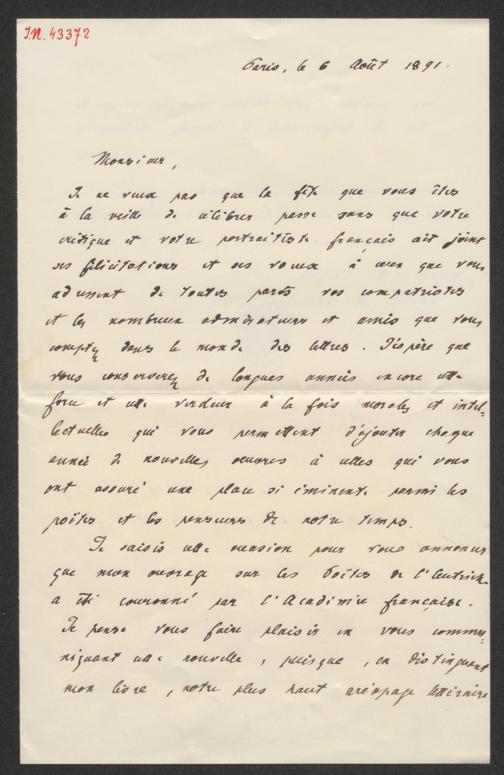 I.N. 43372
Paris, le 6 Août 1891.
Monsieur,
Je ne veux pas que la fête que vous êtes
à la veille de célébrer passe sans que votre
critique et votre portraitiste français ait joint
ses félicitations et ses voeux à ceux que vous
adressent de toutes parts vos compatriotes
et les nombreux admirateurs et amis que vous
comptez dans le monde des lettres. J'espère que
vous conserverez de longues années encore cette
force et cette verdeur à la fois morales et intel-
lectuelles qui vous permettent d'ajouter chaque
année de nouvelles oeuvres à celles qui vous
ont assuré une place si éminente parmi les
poètes et les penseurs de notre temps.
Je saisis cette occasion pour vous annoncer
que mon ouvrage sur les Poètes de l'Autriche
a été couronné par l'Académie française.
Je pense vous faire plaisir en vous commu-
niquant cette nouvelle, puisque, en distinguant
mon livre, notre plus haut aréopage littéraire